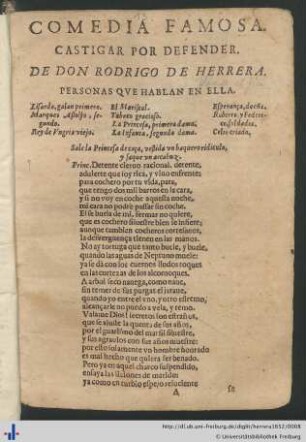 COMEDIA FAMOSA.
CASTIGAR POR DEFENDER.
DE DON RODRIGO DE HERRERA.
PERSONAS QVE HABLAN EN ELLA.
Lisardo, galan primero. El Mariscal. Esperança, dueña.
Marques Astolfo, segundo. Tabaco gracioso. Roberto, y Federico, soldados.
La Princesa, primera dama.
Rey de Vngria viejo. La Infanta, segunda dama. Celio criado.
Sale la Princesa de caça, vestida un baquero ridiculo,
y saque un arcabuz.
Prin. Detente cieruo racional, detente,
aduierte que soy rica, y vino enfrente
para cochero por tu vida, para,
que tengo dos mil barros en la cara,
y si no voy en coche aquesta noche,
mi cara no podrè passar sin coche.
El se burla de mi, fermar no quiere,
que es cochero silvestre bien se infiere,
aunque tambien cocheros cortesanos,
la desverguença tienen en las manos.
No ay tortuga que tanto bucle, y bucle,
quando las aguas de Neptuno muele:
ya se dà con los cuernos
en las cortezas de los alcornoques.
A arbol seco matega, como tantos,
sin temer de sus purgas el
quando yo entre el uno, y otro estremo,
alcançarle no puedo a vela, y remo.
Valame Dios! secretos son estraños,
que se
por el
y sus agrauios con sus años muestre:
por esto solamente vn hombre honrado
es mal hecho que quiera ser benado.
Pero ya en aquel charco suspendido,
ensaya las ilusiones de marido:
ya como en turbio espejo
A